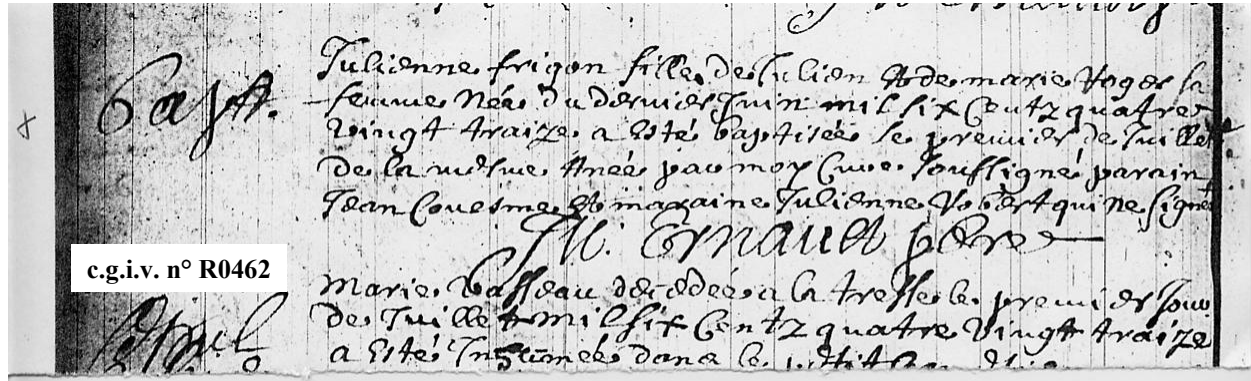 Bapt.
Julienne frigon fille de Julien & de marie Roger sa
femme Née du dernier Juin mil six Centz quatre
vingt traize a Esté baptisée le premier de Juillet
de la mesme Anée par moy Curé soussigné parain
Jean Couesme et maraine Julienne Robert qui ne signet
M. Ernault pbre
c.g.i.v. n° R0462
Marie décédée a la le premier Jour
de Juillet mil six Centz quatre vingt traize
Sepul
a Esté Inhumée dans le petit